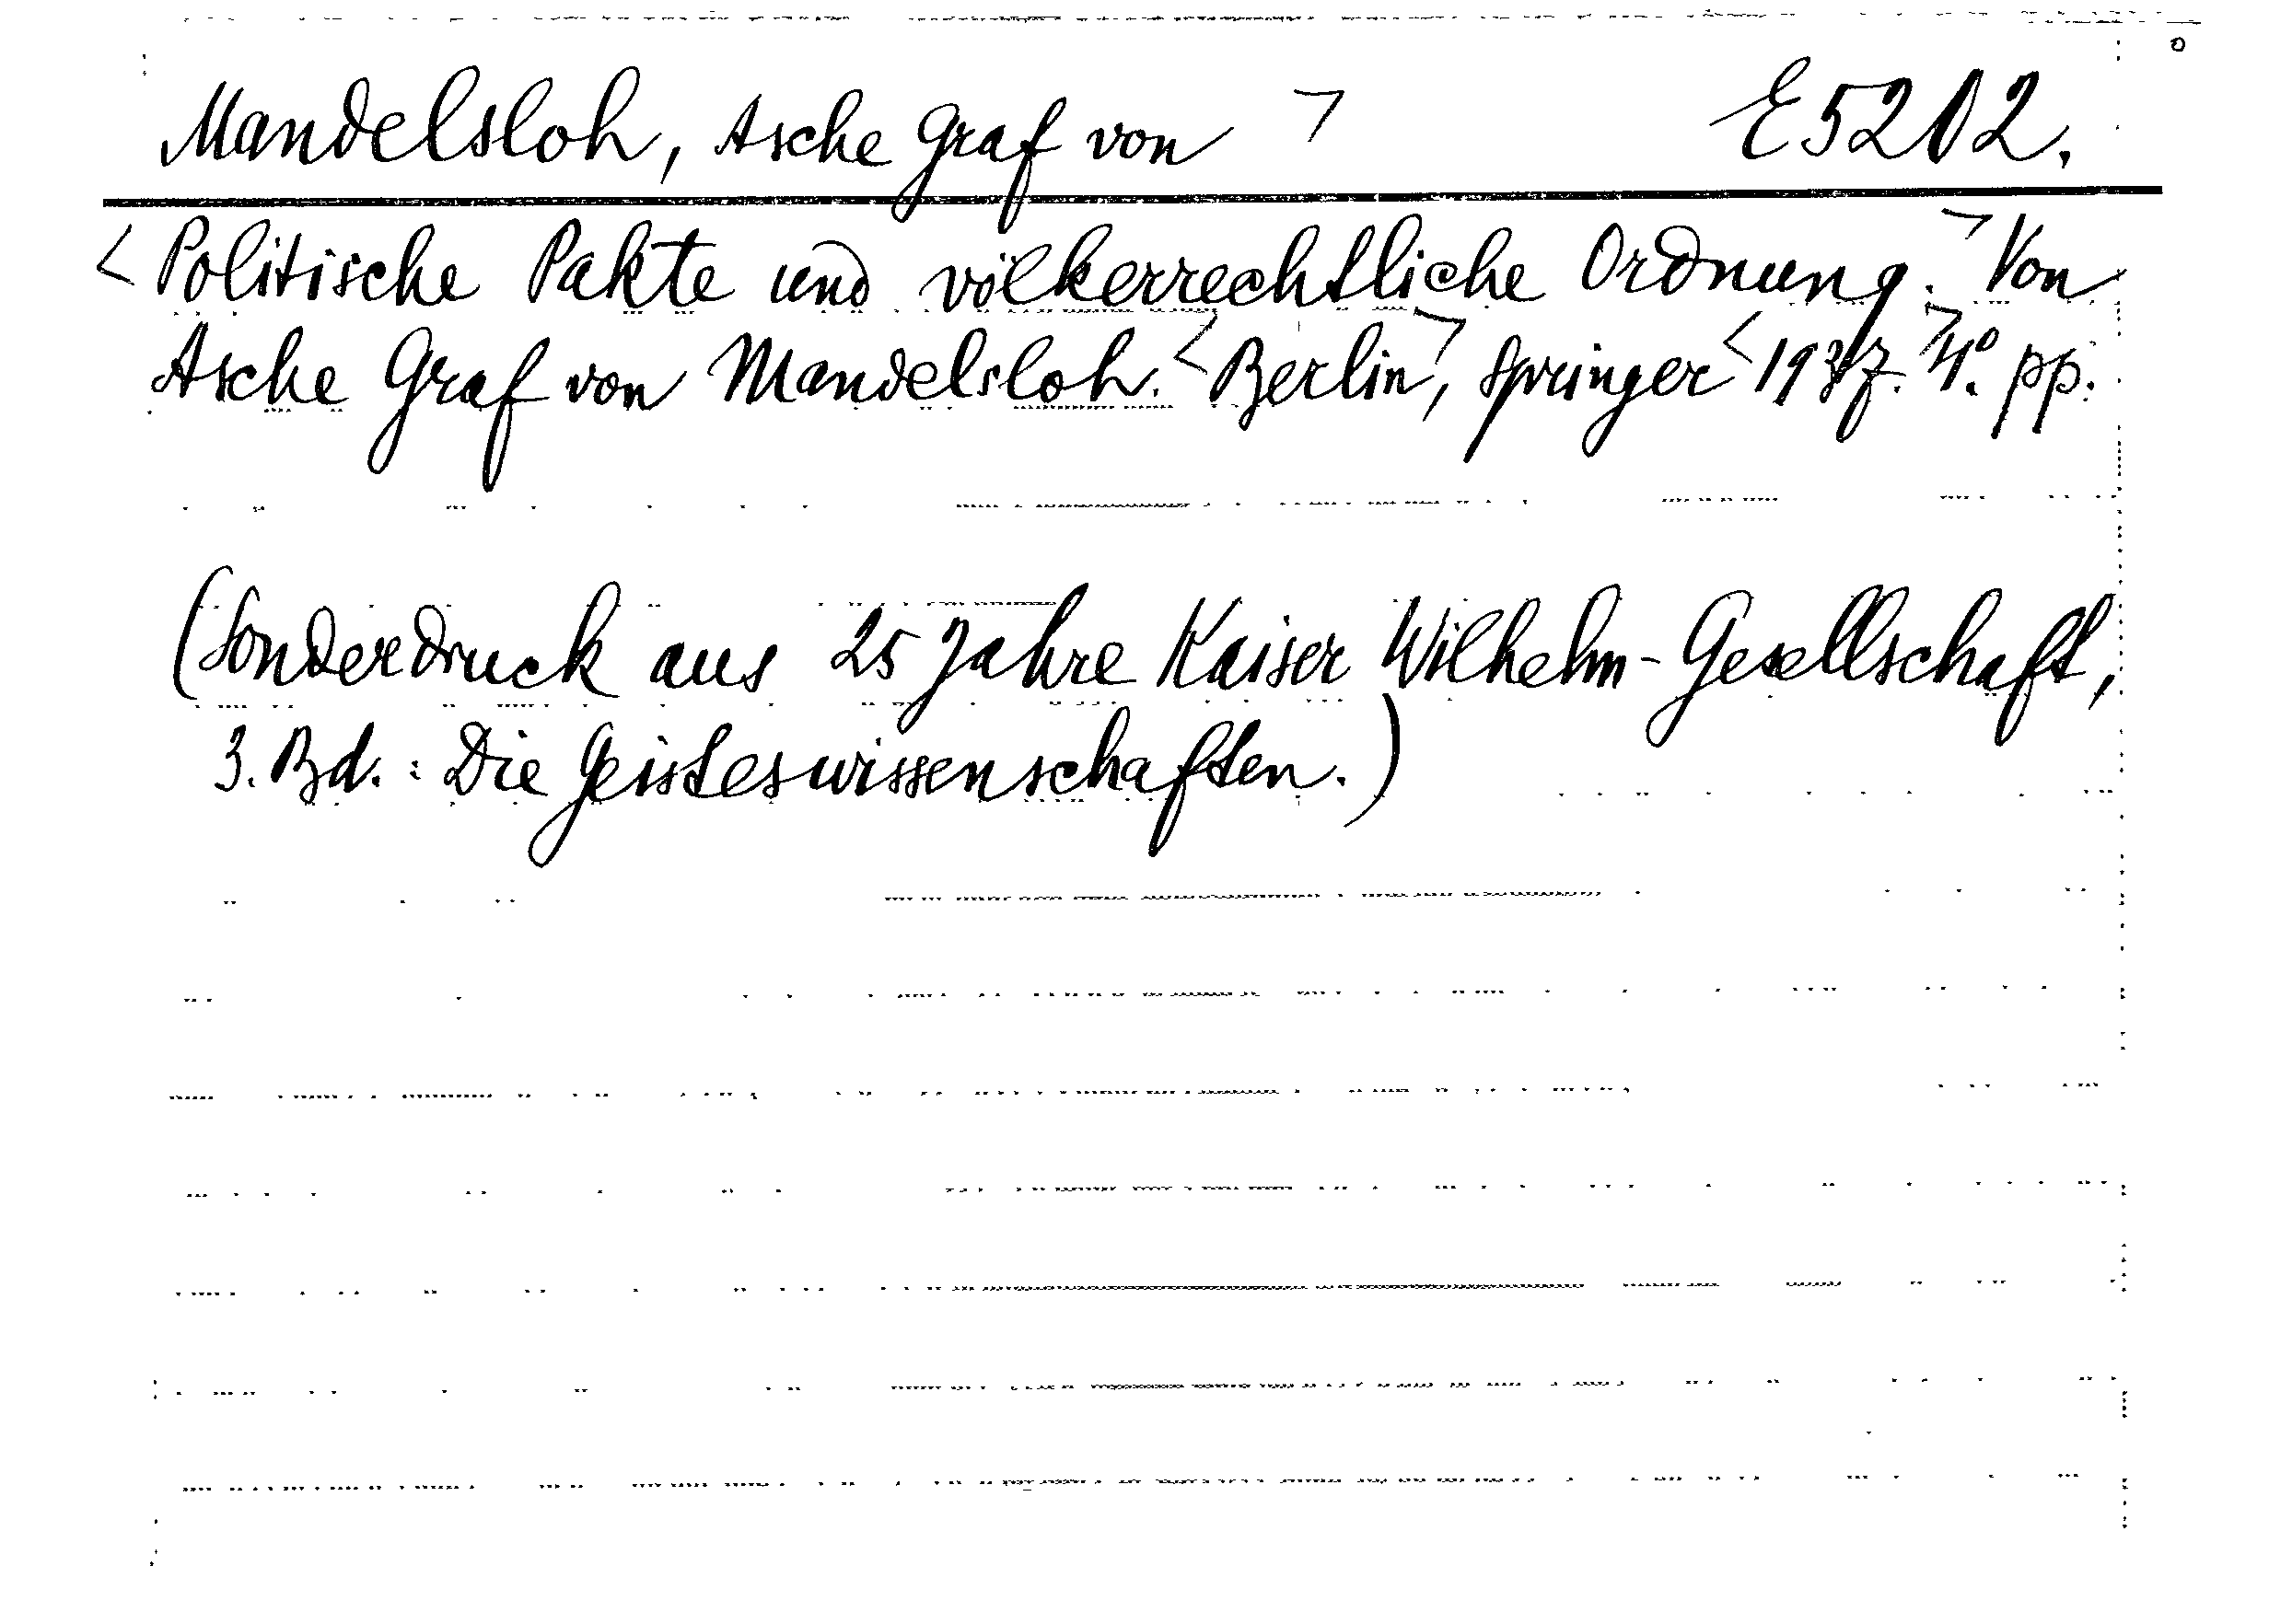 Mandelsloh, Asche Graf von > E5202.
<Politische Pakte und völkerrechtliche Ordnung.> Von
Asche Graf von Mandelsloh. <Berlin>, Springer <1937.> 4°. pp.
(Sonderdruck aus 25 Jahre Kaiser Wilhelm-Gesellschaft,
3. Bd.: Die Geisteswissenschaften.)